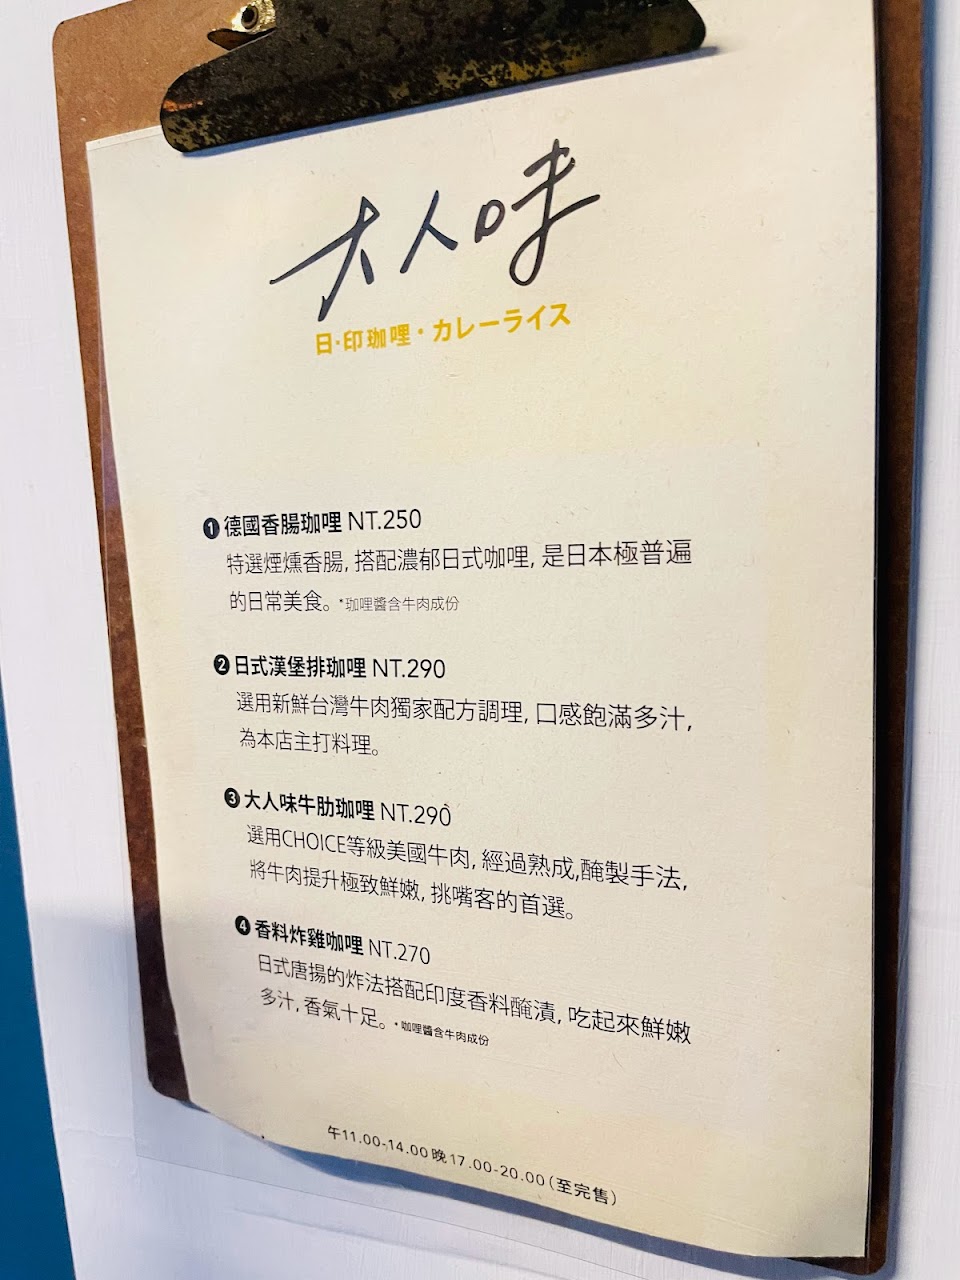 大人味
日·印珈哩·カレーライス
❶ 德國香腸珈哩 NT.250
特選煙燻香腸, 搭配濃郁日式咖哩, 是日本極普遍
的日常美食。*珈哩醬含牛肉成份
❷ 日式漢堡排珈哩 NT.290
選用新鮮台灣牛肉獨家配方調理, 口感飽滿多汁,
為本店主打料理。
❸ 大人味牛肋珈哩 NT.290
選用CHOICE等級美國牛肉, 經過熟成,醃製手法,
將牛肉提升極致鮮嫩, 挑嘴客的首選。
❹ 香料炸雞咖哩 NT.270
日式唐揚的炸法搭配印度香料醃漬, 吃起來鮮嫩
多汁, 香氣十足。*咖哩醬含牛肉成份
午11.00-14.00 晚17.00-20.00(至完售)